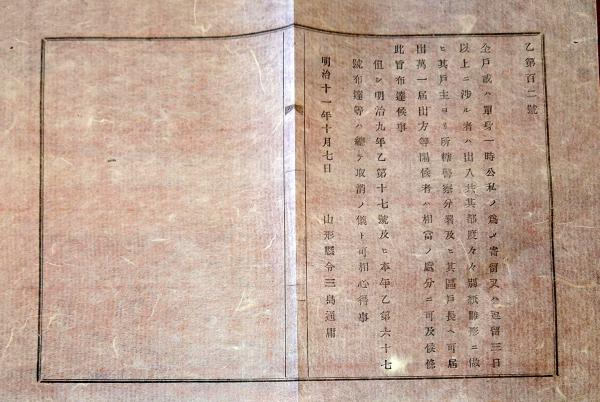 乙第百二號
全戸或ハ單身一時公私ノ爲メ寄留又ハ逗留三日
以上ニ涉ル者ハ出入共其都度々々別紙雛形ニ倣
ヒ其戸主ヨリ所轄警察分署及ヒ其區戸長ヘ可届
出萬一届出方等閑候者ハ相當ノ處分ニ可及候條
此旨布達候事
但シ明治九年乙第十七號及ヒ本年乙第六十七
號布達等ハ總テ取消ノ儀ト可相心得事
明治十一年十月七日 山形縣令三島通庸